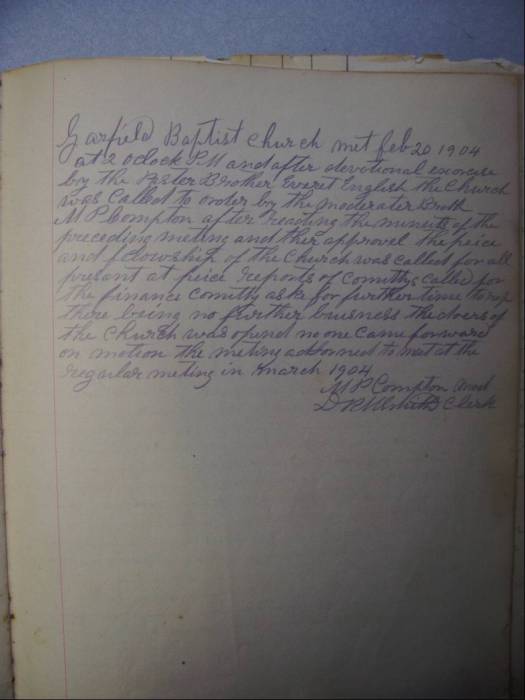 Garfield Baptist Church met feb 20 1904
at 2 oclock P.M and after devotional excercise
by the Paster Brother Everet English the Church
was called to order by the moderater Broth
M P Compton after reading the minuits of the
preceding meting and ther approvel the peice
and felowship of the Church was called for all
present at peice reports of comittys called for
the finance comitty aske for further time to rep
there being no further buisness the doers of
the Church was opend no one came forward
on motion the meting adborned to met at the
regarlar meting in march 1904
M P Compton Mod
Clerk